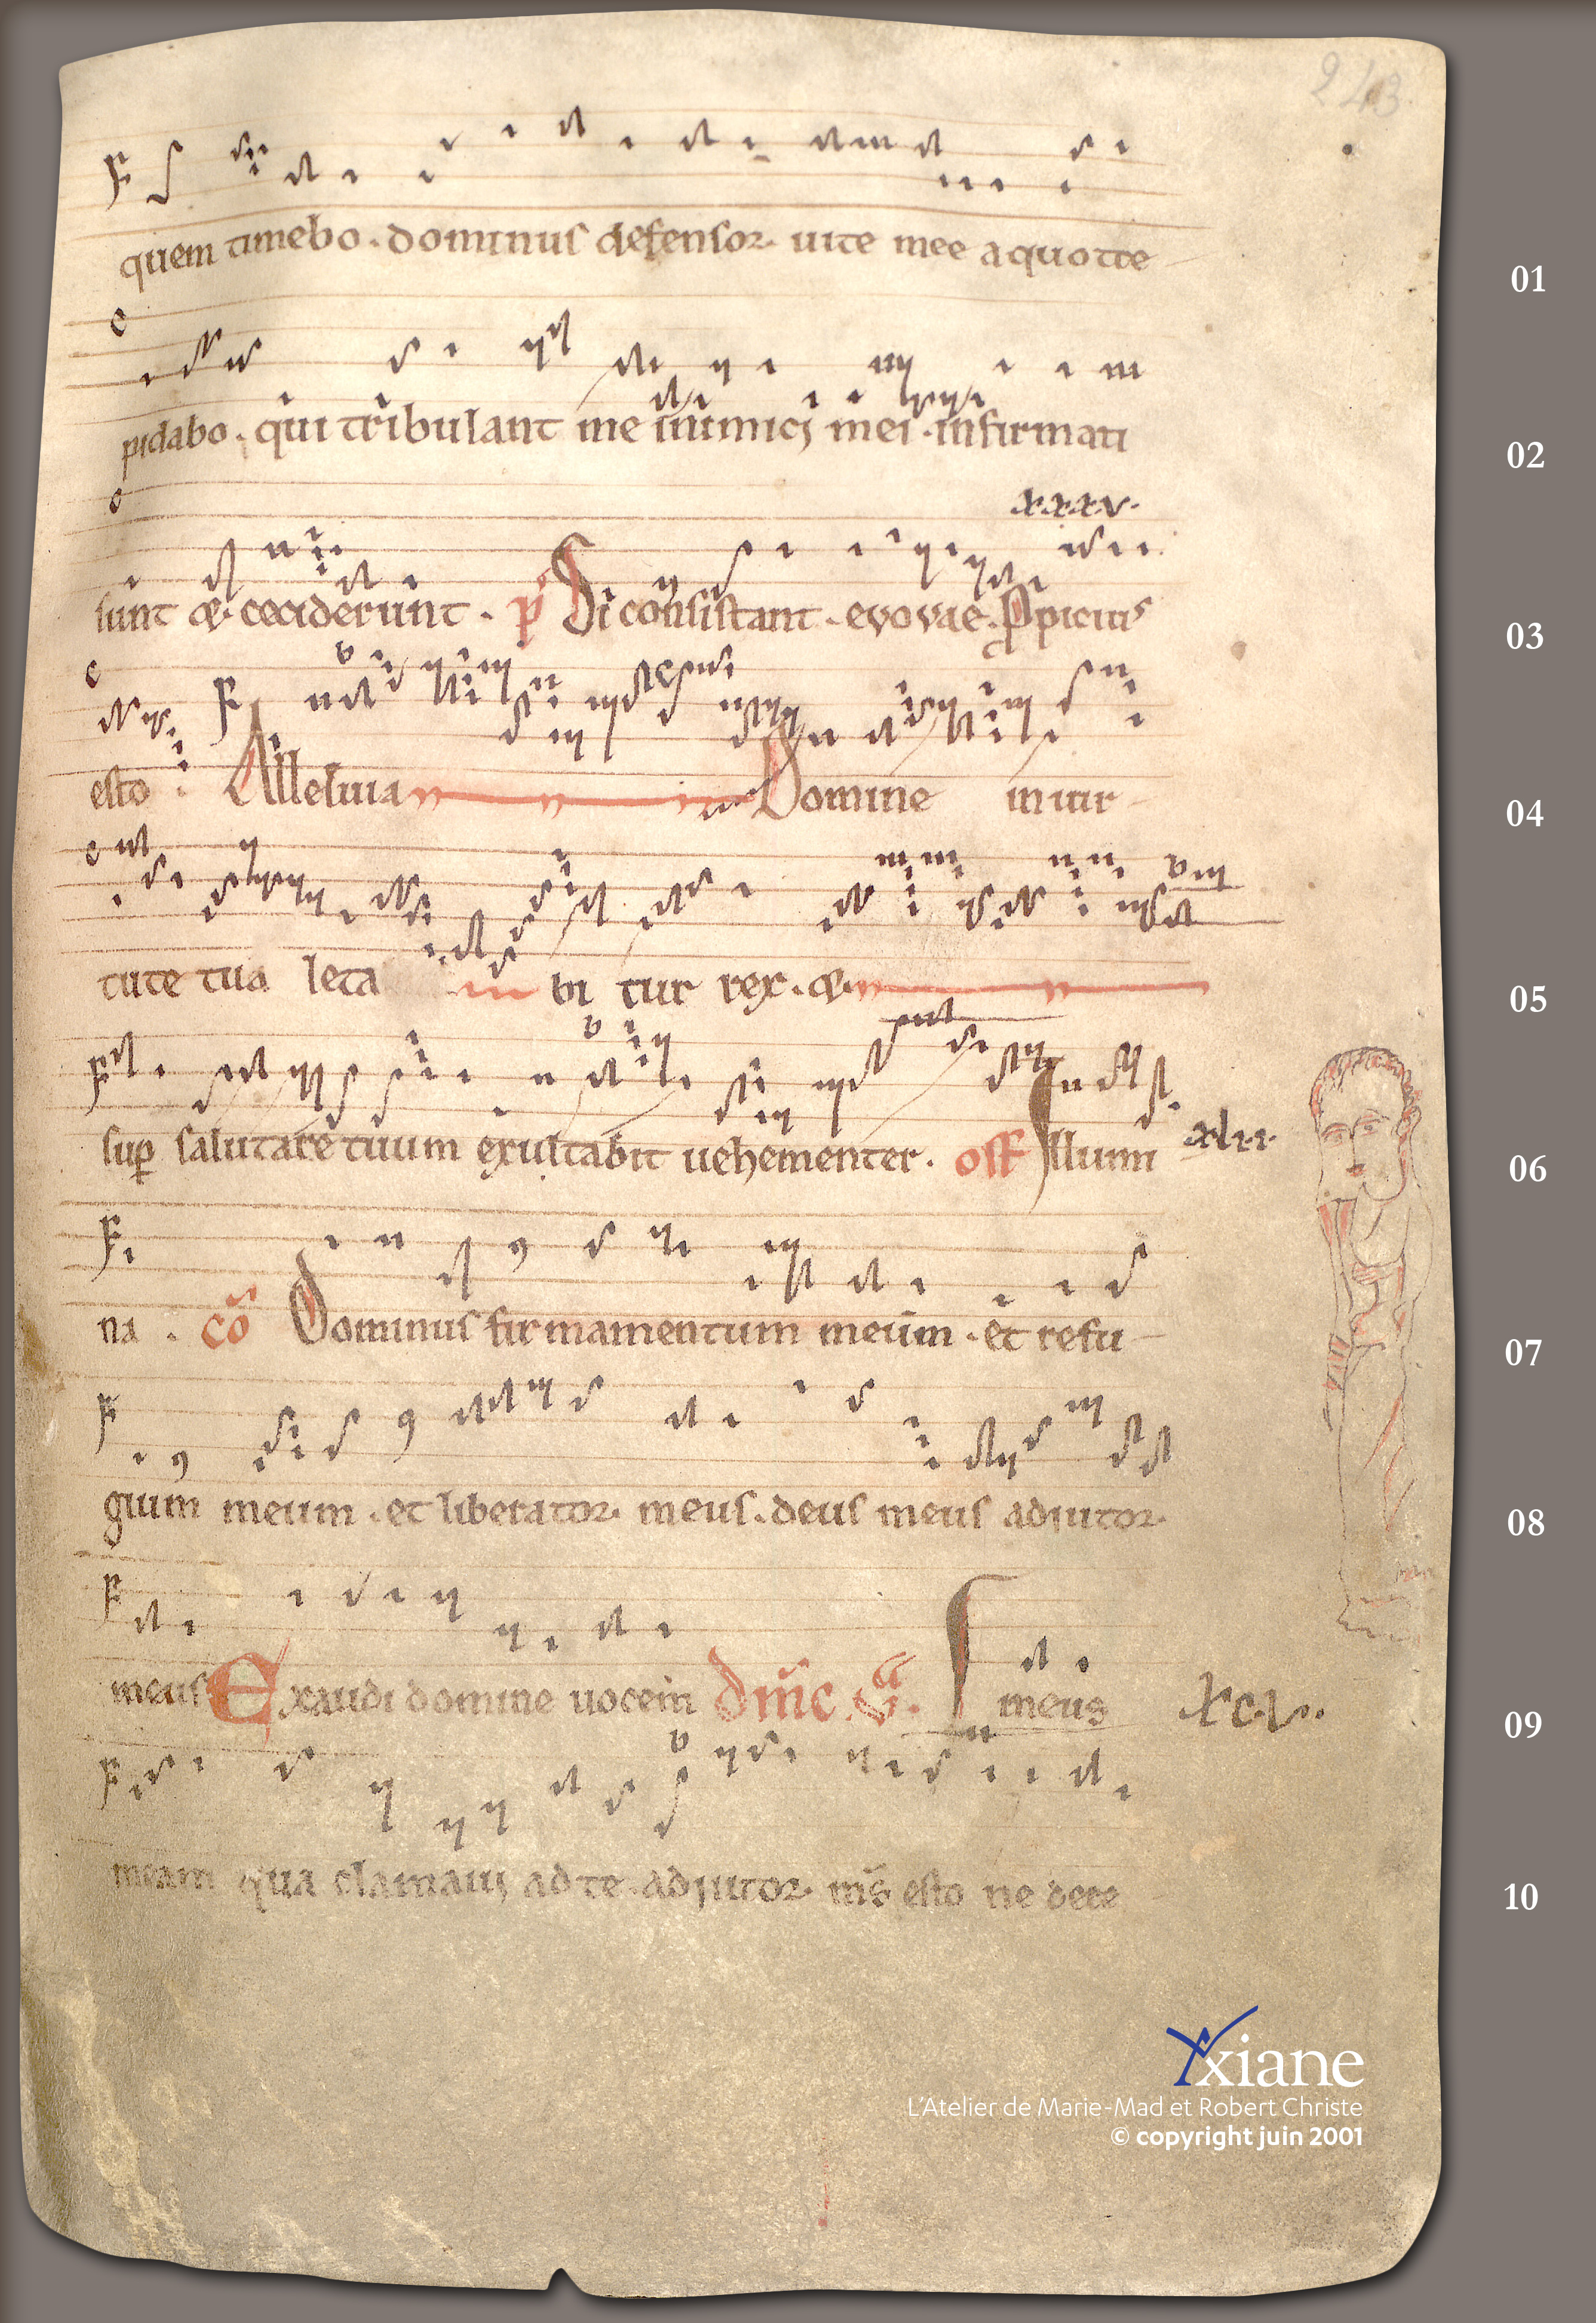 243
quem timebo. dominus defensor. uite mee aquo tre
01
pidabo. qui tribulant me inimicj mei. infirmati
02
xxxv.
sunt &. ceciderunt. p̃ Si consistant. evovae. Ppicius
03
esto. Alleluia Domine in uir
04
tute tua leta bi tur rex. &.
05
sup salutare tuum exultabit uehementer. off Illumi xlii.
06
na. cõ Dominus firmamentum meum. et refu
07
gium meum. et liberator. meus. deus meus adiutor.
08
meus Exaudi domine uocem dm̃c. meus xcv.
09
meam qua clamauj ad te. adjutor. ms̃ esto ne dere
10
Yxiane
L'Atelier de Marie-Mad et Robert Christe
© copyright juin 2001